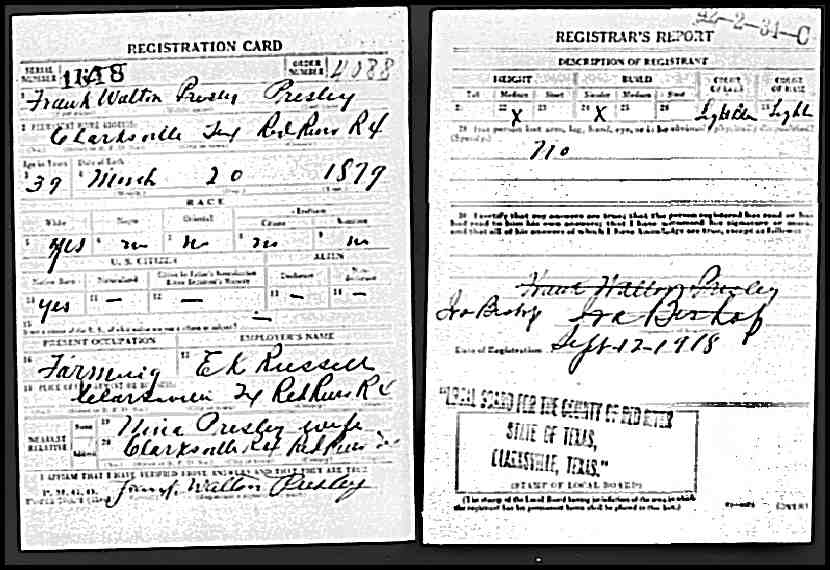 REGISTRATION CARD
SERIAL NUMBER 1648
ORDER NUMBER 4088
1 Frank Walton Presly Presley
2 PERMANENT HOME ADDRESS:
Clarksville Tex Red River R4
Age in Years Date of Birth
3 39 4 March 20 1879
RACE
White Negro Oriental Indian
Citizen Noncitizen
5 yes 6 no 7 no 8 no 9 no
U. S. CITIZEN ALIEN
Native Born Naturalized Citizen by Father's Naturalization Declarant Non-declarant
10 yes 11 — 12 — 13 — 14 —
15 —
PRESENT OCCUPATION EMPLOYER'S NAME
16 Farming 17 E K Russell
18 PLACE OF EMPLOYMENT OR BUSINESS:
Clarksville Tex Red River R4
NEAREST RELATIVE
Name 19 Nina Presley wife
Address 20 Clarksville R4 Red River Tex
I AFFIRM THAT I HAVE VERIFIED ABOVE ANSWERS AND THAT THEY ARE TRUE
Walton Presley
REGISTRAR'S REPORT
42-2-31-C
DESCRIPTION OF REGISTRANT
HEIGHT BUILD COLOR OF EYES COLOR OF HAIR
Tall Medium Short Slender Medium Stout
21 22 X 23 24 X 25 26 27 28 Light
29 Has person lost arm, leg, hand, eye, or is he obviously physically disqualified?
(Specify.)
No
30 I certify that my answers are true; that the person registered has read or has
had read to him his own answers; that I have witnessed his signature or mark,
and that all of his answers of which I have knowledge are true, except as follows:
Frank Walton Presley
Ira Bishop Ira Bishop
Date of Registration Sept-12-1918
"LOCAL BOARD FOR THE COUNTY OF RED RIVER
STATE OF TEXAS,
CLARKSVILLE, TEXAS."
(STAMP OF LOCAL BOARD)
(The stamp of the Local Board having jurisdiction of the area in which
the registrant has his permanent home shall be placed in this box.)
(OVER)